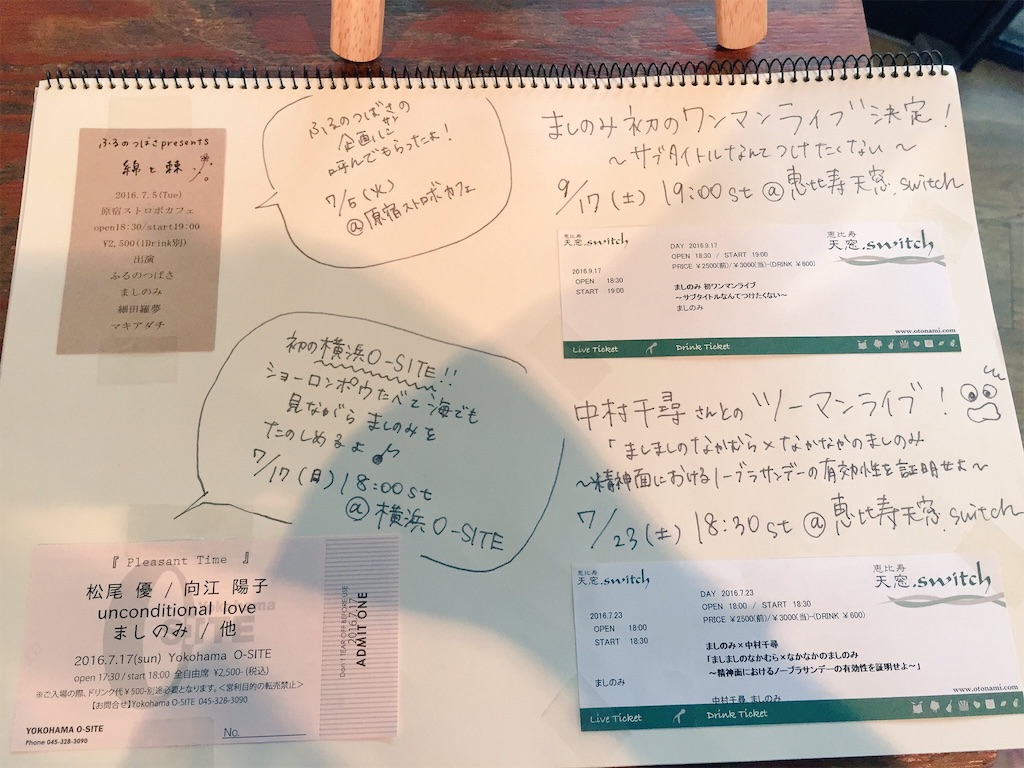 ふるのつばさpresents
綿と棘
2016.7.5(Tue)
原宿ストロボカフェ
open18:30/start19:00
¥2,500(1Drink別)
出演
ふるのつばさ
ましのみ
細田羅夢
マキアダチ
ふるのつばさの
サン
企画に
呼んでもらったよ!
7/5(火)
@原宿ストロボカフェ
初の横浜O-SITE!!
ショーロンポウたべて海でも
見ながら ましのみを
たのしめるよ♪
7/17(日)18:00st
@横浜O-SITE
『 Pleasant Time 』
松尾 優 / 向江 陽子
unconditional love
ましのみ / 他
2016.7.17(sun) Yokohama O-SITE
open 17:30 / start 18:00 全自由席 ¥2,500-(税込)
※ご入場の際、ドリンク代¥500-別途必要となります。<営利目的の転売禁止>
【お問合せ】Yokohama O-SITE 045-328-3090
YOKOHAMA O-SITE
Phone 045-328-3090
No.
DON'T TEAR OFF BEFORE USE
2016.7.17
ADMIT ONE
ましのみ 初のワンマンライブ 決定!
~サブタイトルなんてつけたくない~
9/17(土)19:00st @恵比寿天窓.switch
恵比寿
天窓.switch
2016.9.17
OPEN 18:30
START 19:00
DAY 2016.9.17
OPEN 18:30 / START 19:00
PRICE ¥2500(前)/¥3000(当)-(DRINK ¥600)
ましのみ 初ワンマンライブ
~サブタイトルなんてつけたくない~
ましのみ
恵比寿
天窓.switch
www.otonami.com
Live Ticket
Drink Ticket
中村千尋さんとの ツーマンライブ!
「ましましのなかむら×なかなかのましのみ
~精神面におけるノーブラサンデーの有効性を証明せよ~
7/23(土)18:30st @恵比寿天窓.switch
恵比寿
天窓.switch
2016.7.23
OPEN 18:00
START 18:30
ましのみ
DAY 2016.7.23
OPEN 18:00 / START 18:30
PRICE ¥2500(前)/¥3000(当)-(DRINK ¥600)
ましのみ×中村千尋
「ましましのなかむら×なかなかのましのみ
~精神面におけるノーブラサンデーの有効性を証明せよ~」
中村千尋 ましのみ
恵比寿
天窓.switch
www.otonami.com
Live Ticket
Drink Ticket